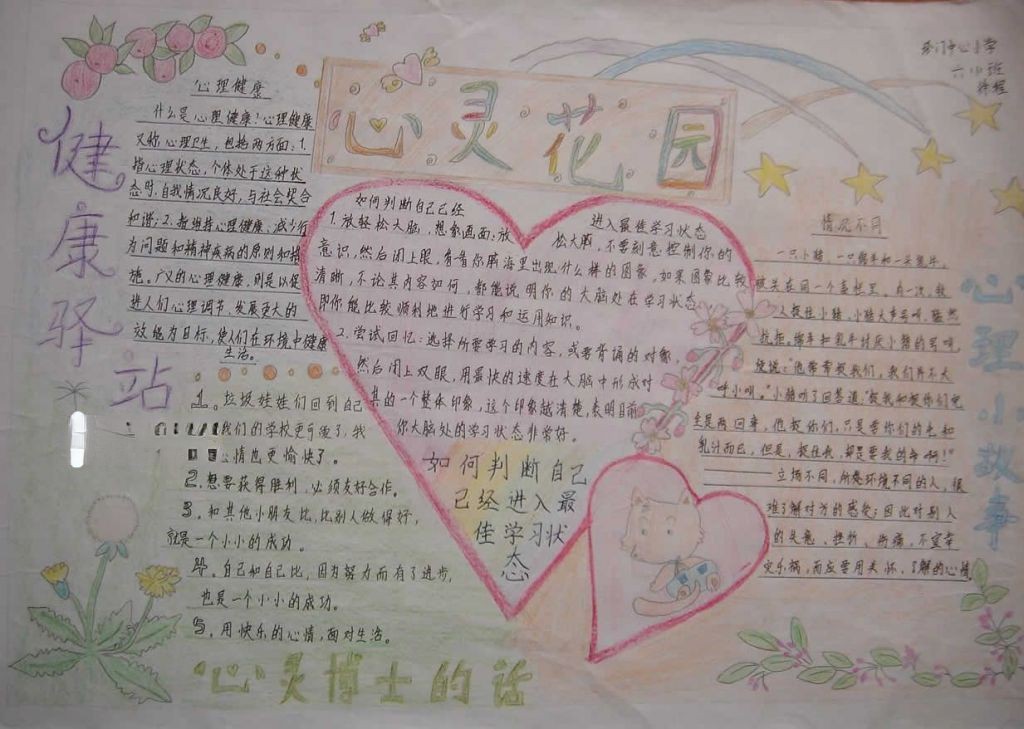 心灵花园
中心小学
六(1)班
健康驿站
心理健康
什么是心理健康?心理健康
又称心理卫生,包括两方面:1.
指心理状态,个体处于这种状
态时,自我情况良好,与社会契合
和谐;2.指维持心理健康、减少行
为问题和精神疾病的原则和措
施。广义的心理健康,则是以促
进人们心理调节、发展更大的
效能为目标,使人们在环境中健康
生活。
1。垃圾娃娃们回到自己
我们的学校更可爱了,我
心情也更愉快了。
2.想要获得胜利,必须友好合作。
3。和其他小朋友比,比别人做得好,
就是一个小小的成功。
4。自己和自己比,因为努力而有了进步,
也是一个小小的成功。
5。用快乐的心情,面对生活。
心灵博士的话
如何判断自己已经
进入最佳学习状态
1.放轻松大脑,想象画面:放
松大脑,不要刻意控制你的
意识,然后闭上眼,看是你脑海里出现什么样的图象,如果图象比较
清晰,不论其内容如何,都能说明你的大脑处在学习状态,
即你能比较顺利地进行学习和运用知识。
2.尝试回忆:选择所要学习的内容,或要背诵的对象,
然后闭上双眼,用最快的速度在大脑中形成对
其的一个整体印象,这个印象越清楚,表明目前
你大脑处的学习状态非常好。
如何判断自己
已经进入最
佳学习状
态
心理小故事
情况不同
一只小猪、一只绵羊和一头乳牛,
被关在同一个畜栏里。有一次,牧
人捉住小猪,小猪大声号叫,猛烈
抗拒。绵羊和乳牛讨厌小猪的号叫,
便说:“他常常捉我们,我们并不大
呼小叫。”小猪听了回答道:“捉我和捉你们完
全是两回事,他捉你们,只是要你们的毛和
乳汁而已,但是,捉住我,却是要我的命啊!”
立场不同、所处环境不同的人,很
难了解对方的感受;因此对别人
的失意、挫折、伤痛,不宜幸
灾乐祸,而应要用关怀、了解的心情